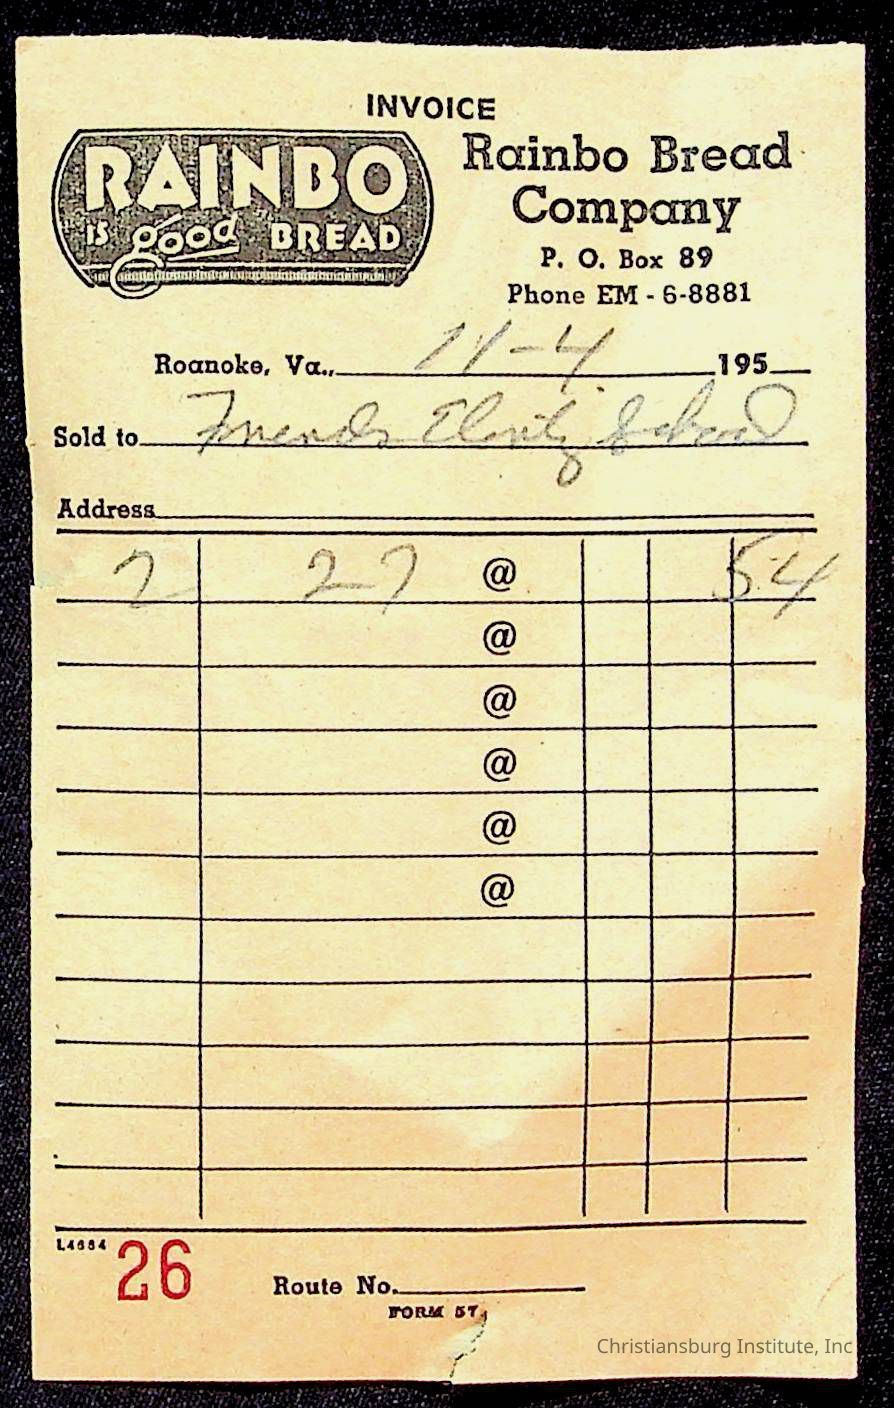 INVOICE
RAINBO
IS good BREAD
Rainbo Bread
Company
P. O. Box 89
Phone EM - 6-8881
Roanoke, Va., 11-4 195
Sold to Friends School
Address
2 27 @ 54
@
@
@
@
@
L4684
26
Route No.
FORM 57
Christiansburg Institute, Inc